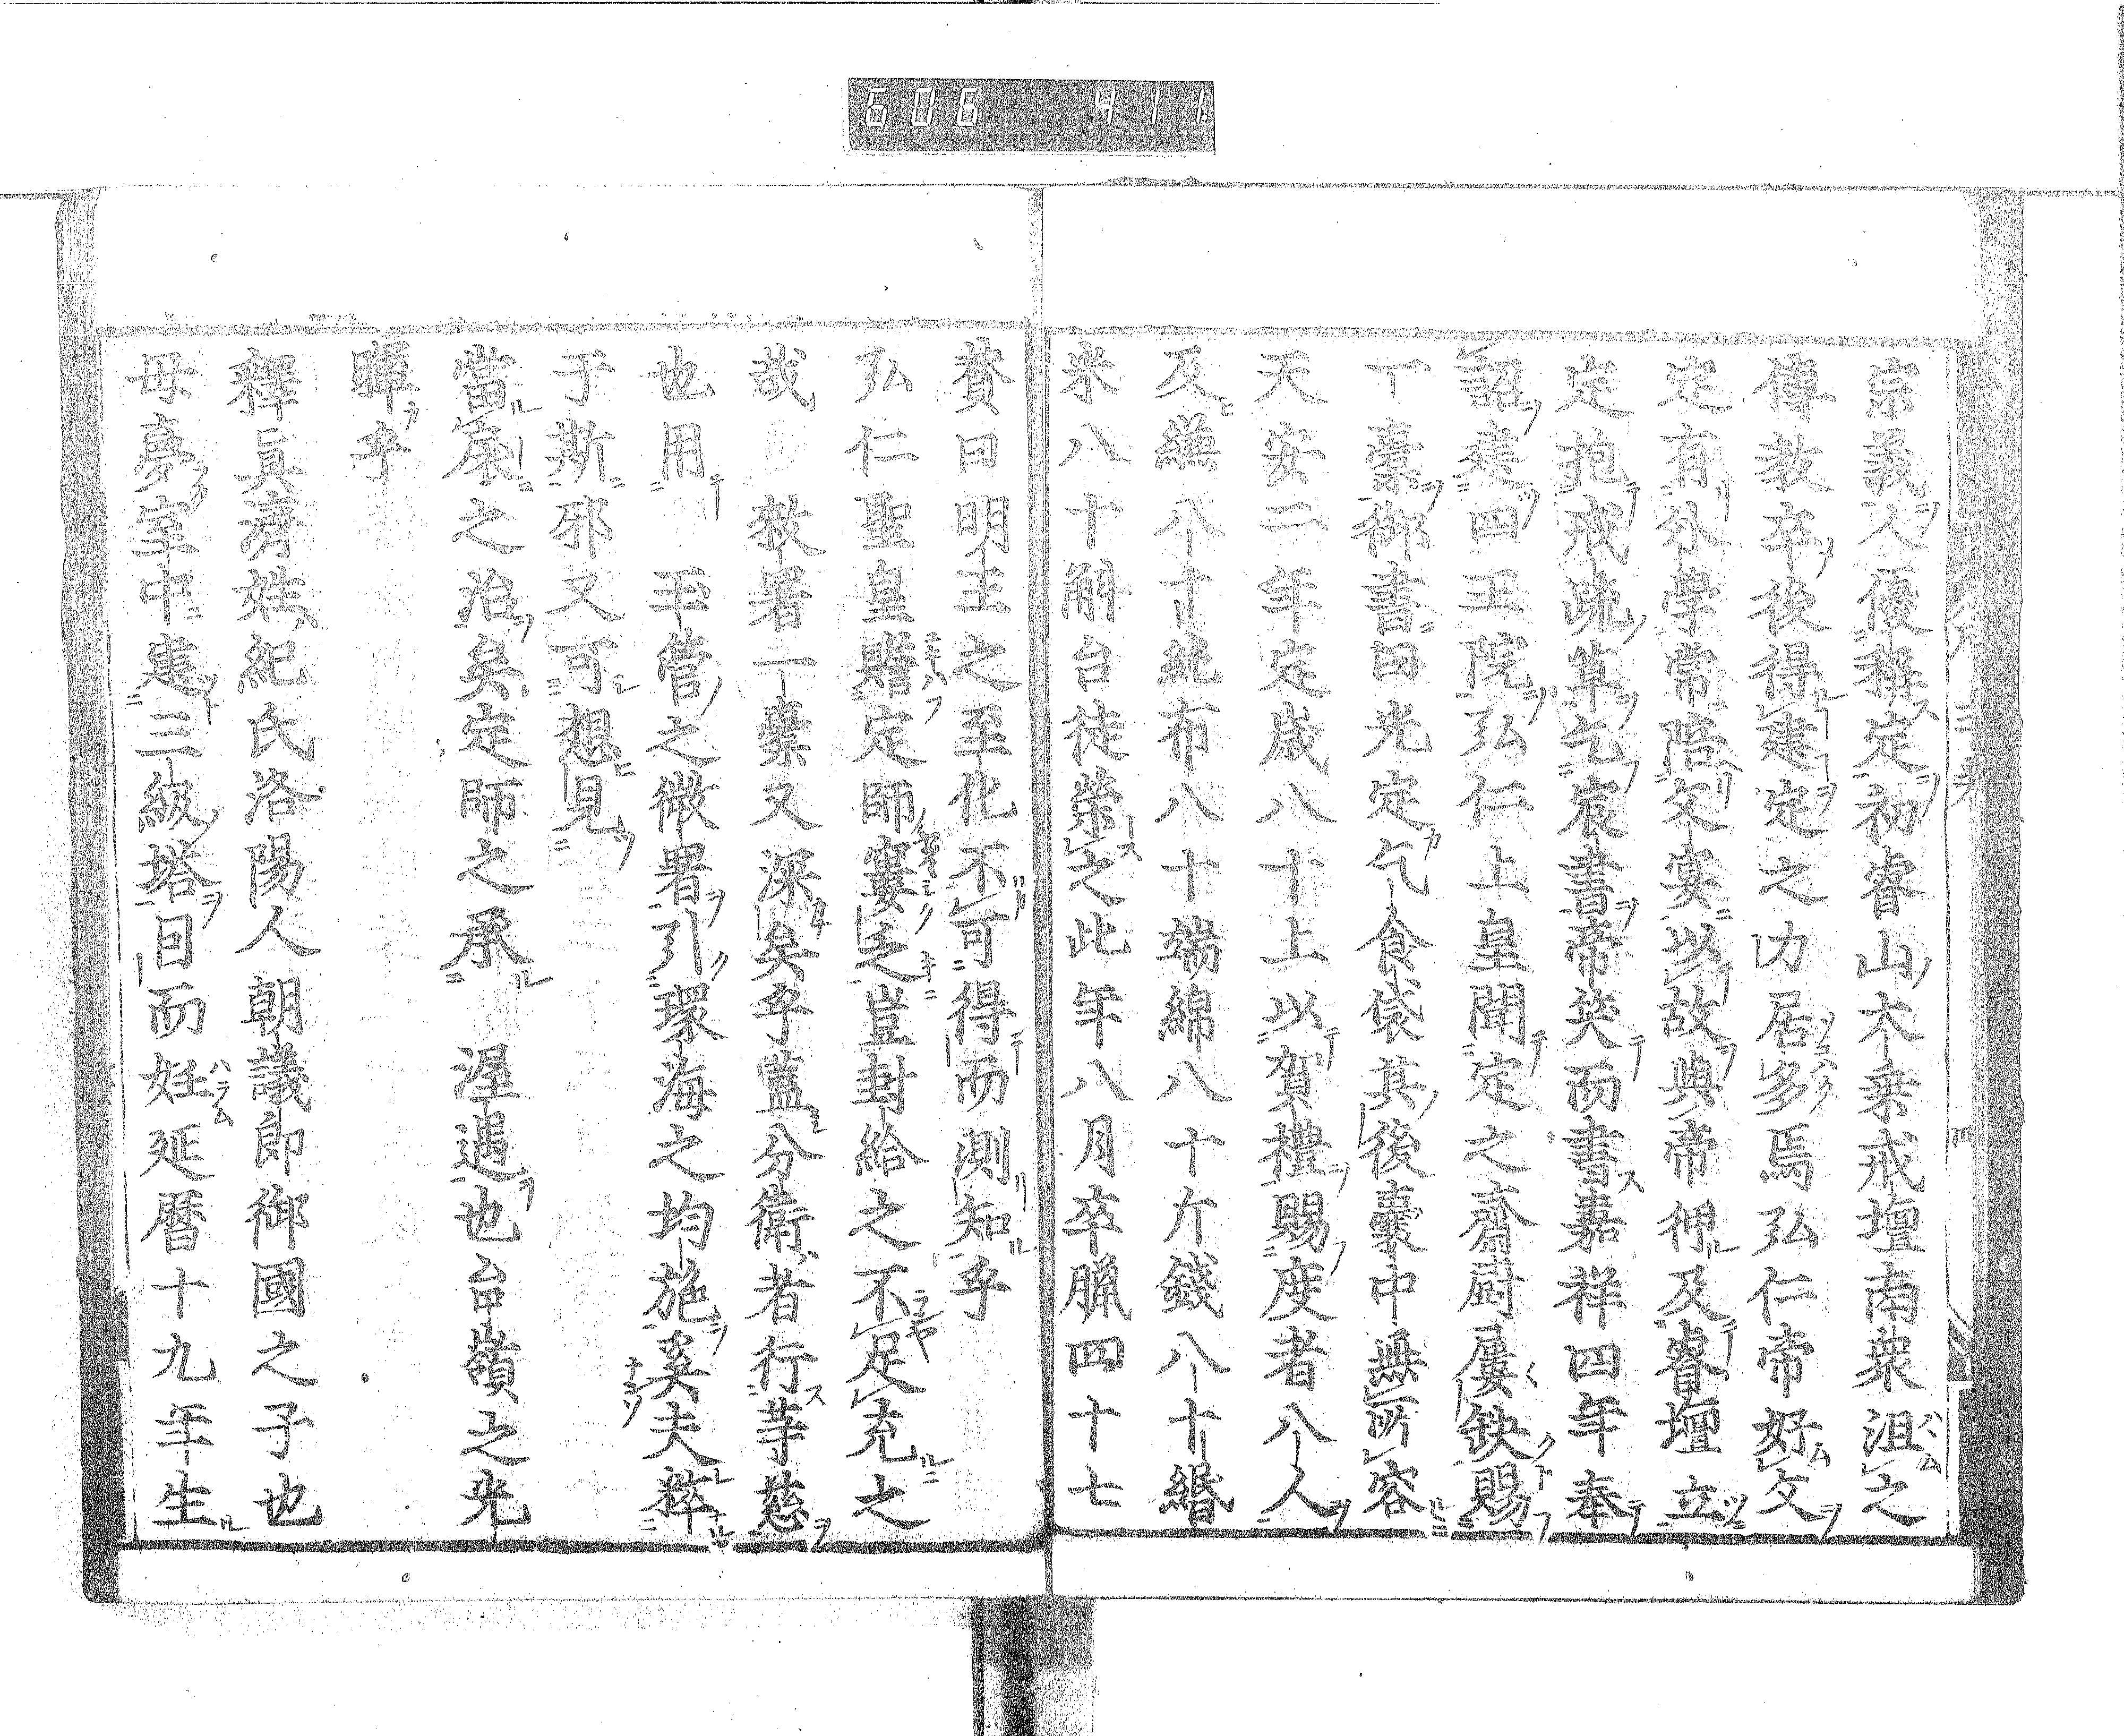 606 411
宗義人優稱定初睿山大乗戒壇南衆沮之
傳教卒後得建定之力居多焉弘仁帝好文
定有外學常陪文宴以故與帝狎及睿壇立
定抱戒疏草乞宸書帝笑而書嘉祥四年奉
詔建四王院弘仁上皇聞定之齋厨屢缺賜
一囊御書曰光定乞食袋其後囊中無所容
天安二年定歳八十上以賀禮賜度者八人
及縑八十疋布八十端綿八十斤錢八十緡
米八十斛台徒榮之此年八月卒臘四十七
賛曰明王之至化不可得而測知乎
弘仁聖皇贍定師寠乏豈封給之不足充之
哉 敕署一囊又深矣乎蓋分衛者行等慈
也用 玉管之微署引環海之均施奚夫粹
于斯邪又可想見
當 之治矣定師之承 渥遇也台嶺之光
暉乎
釋眞濟姓紀氏洛陽人朝議郎御國之子也
母夢室中建三級塔曰而妊延暦十九年生
四